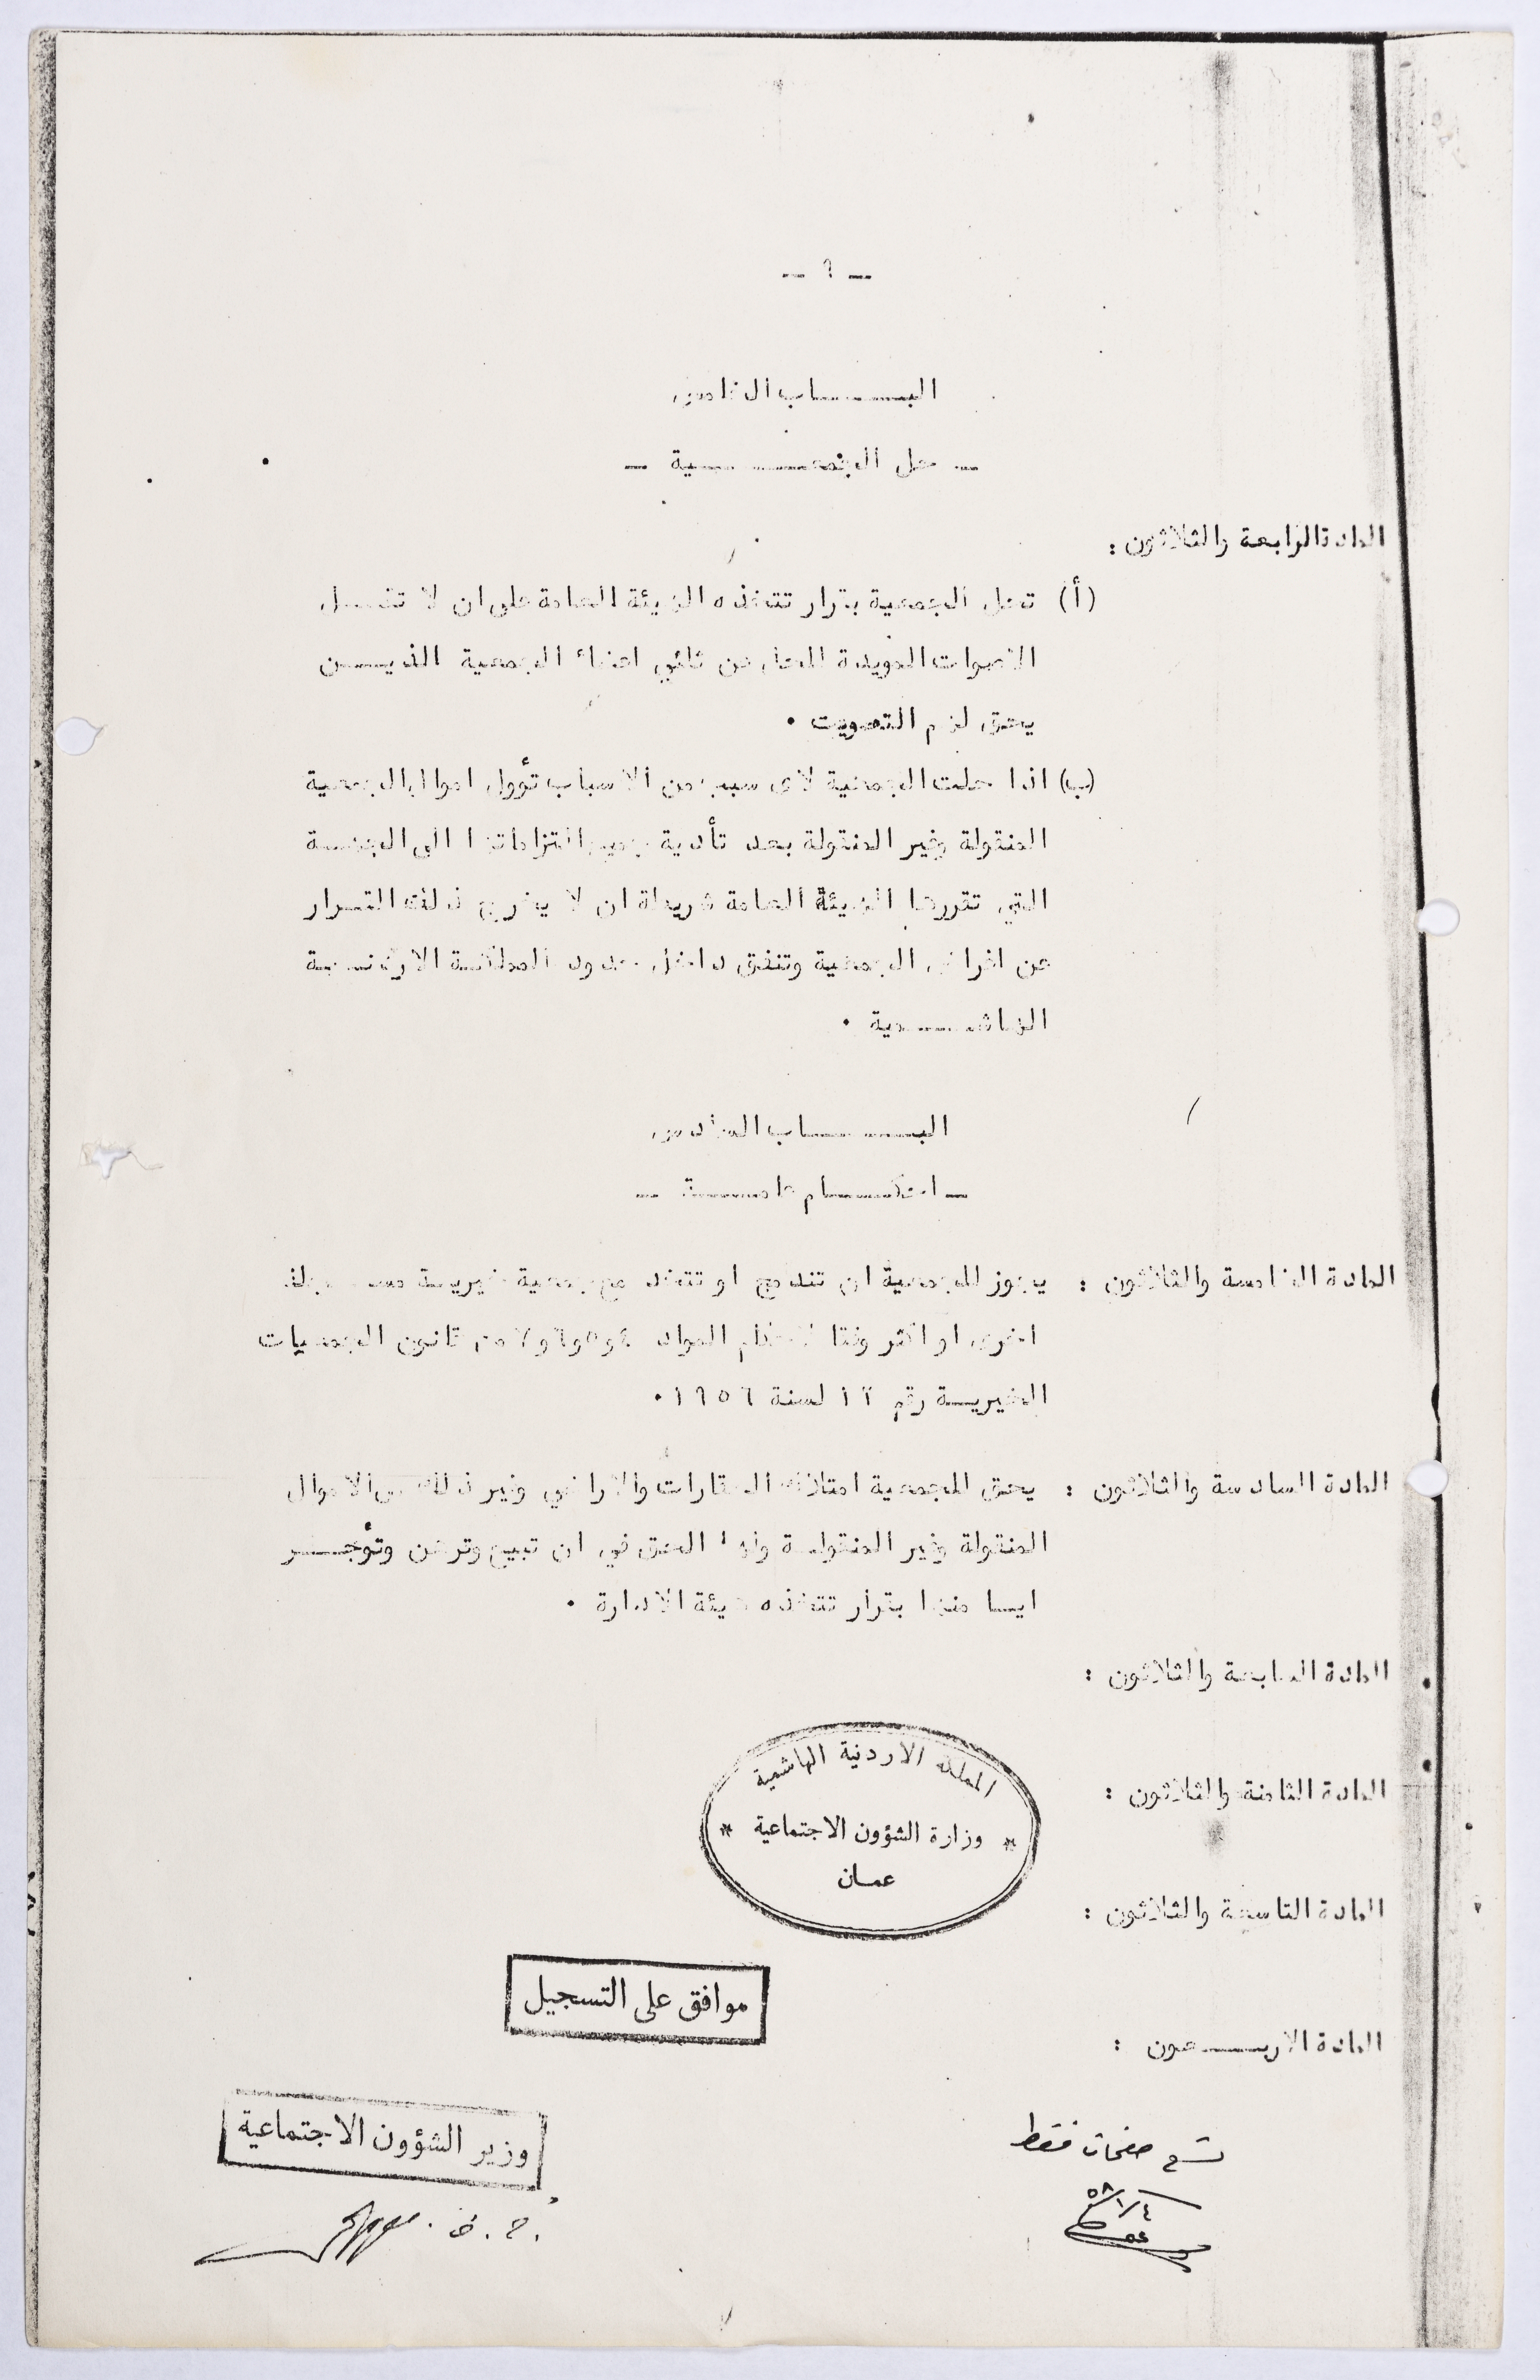 - ٩ -
البـــــاب الخامس
- حل الجمعـــــية -
المادة الرابعة والثلاثون :
(أ) تحل الجمعية بقرار تتخذه الهيئة العامة على ان لا تقـــل
الاصوات المويدة للحل عن ثلثي اعضاء الجمعية الذيـــن
يحق لهم التصويت .
(ب) اذا حلت الجمعية لاى سبب من الاسباب تؤول اموال الجمعية
المنقولة وغير المنقولة بعد تأدية جميع التزاماتها الى الجهـة
التي تقررها الهيئة العامة شريطة ان لا يخرج ذلك القـرار
عن اغراض الجمعية وتنفق داخل حدود المملكـة الاردنـيـة
الهاشـــمية .
البـــــاب السادس
- احكـــام عامـــة -
المادة الخامسة والثلاثون : يجوز للجمعية ان تندمج او تتحد مع جمعية خيريـة مســجلة
اخرى او اكثر وفقا لاحكام المواد ٤و٥و٦و٧ من قانون الجمعيات
الخيريـة رقم ١٢ لسنة ١٩٥٦ .
المادة السادسة والثلاثون : يحق للجمعية امتلاك العقارات والاراضي وغير ذلك من الاموال
المنقولة وغير المنقولـة ولها الحق في ان تبيع وترهن وتؤجـــر
ايـا منها بقرار تتخذه هيئة الادارة .
المادة السابعة والثلاثون :
المملكة الاردنية الهاشمية
المادة الثامنة والثلاثون :
* وزارة الشؤون الاجتماعية *
عمـان
المادة التاسعة والثلاثون :
موافق على التسجيل
المادة الاربـــعون :
وزير الشؤون الاجتماعية
تسع صفحات فقط